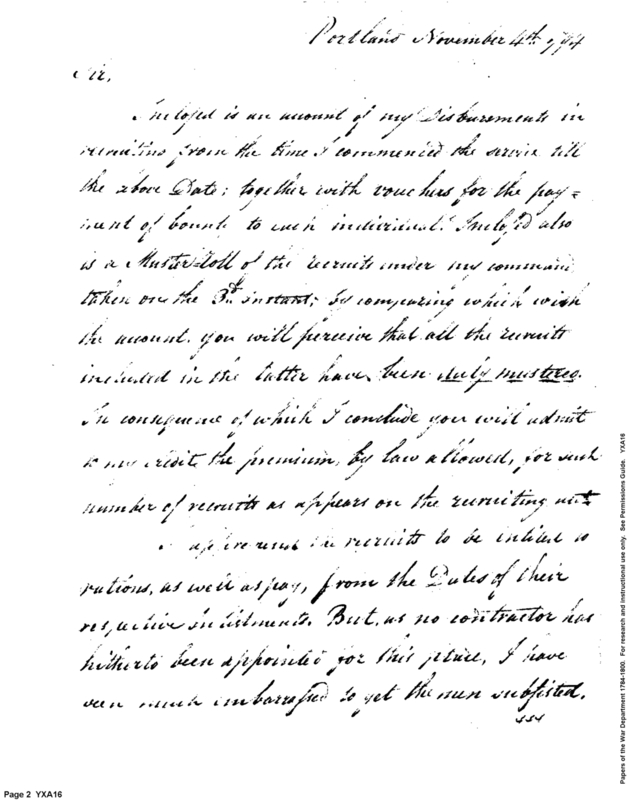 Portland November 4th 1794
Sir,
Inclosed is an account of my Disbursements in
recruiting from the time I commenced the service till
the above Date; together with vouchers for the pay=
ment of bounty to each individual. Inclos'd also
is a Muster=Roll of the recruits under my command
taken on the 3d instant; by comparing which with
the account you will perceive that all the recruits
included in the latter have been duly mustered.
In consequence of which I conclude you will admit
to my credit, the premium, by law allowed, for such
number of recruits as appears on the recruiting acct
I apprehend the recruits to be intitled to
rations, as well as pay, from the Dates of their
respective inlistments. But, as no contractor has
hitherto been appointed for this place, I have
been much embarrassed to get the men subsisted.
Page 2 YXA16
Papers of the War Department 1784-1800. For research and instructional use only. See Permissions Guide. YXA16